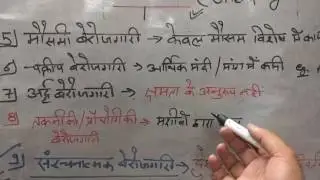 5) मौसमी बेरोजगारी → केवल मौसम विशेष में
6) चक्रीय बेरोजगारी → आर्थिक मंदी / मांग में कमी
7) अर्द्ध बेरोजगारी → क्षमता के अनुरूप नहीं
8) तकनीकी / प्रौद्योगिकी → मशीनों द्वारा
बेरोजगारी
9) संरचनात्मक बेरोजगारी →